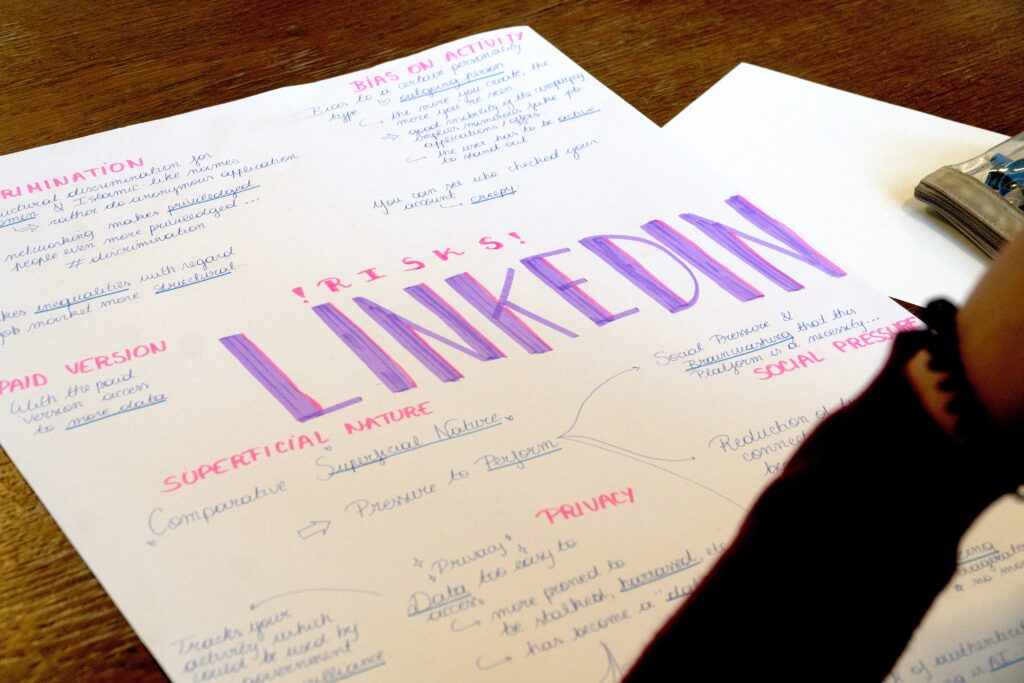 BIAS ON ACTIVITY
Bias to a certain personality
type ♡ outgoing person
↪ the more you create, the
more you're seen
⇒ good visibility of the company
implies numerous fake job
applications / offers
↪ the user has to be active
to stand out
You can see who checked your
account ↪ creepy
RIMINATION
uctural discrimination for
omen & Islamic-like names
↪ rather do anonymous application
networking makes priviledged
people even more priviledged ...
# discrimination
kes inequalities with regard
job market more structural...
! RISKS !
LINKEDIN
PAID VERSION
With the paid
version access
to more data
Social Pressure &
Brainwashing that this
Platform is a necessity...
SOCIAL PRESSURE
SUPERFICIAL NATURE
Comparative Superficial Nature
⇒ Pressure to Perform
Reduction of
connect
be
PRIVACY
"Privacy"
Data too easy to
access
↪ more proned to
be stalked, harrassed, etc
↪ has become a "da
Tracks your
activity which
could be used by
government
* no mo
of authentici
AI